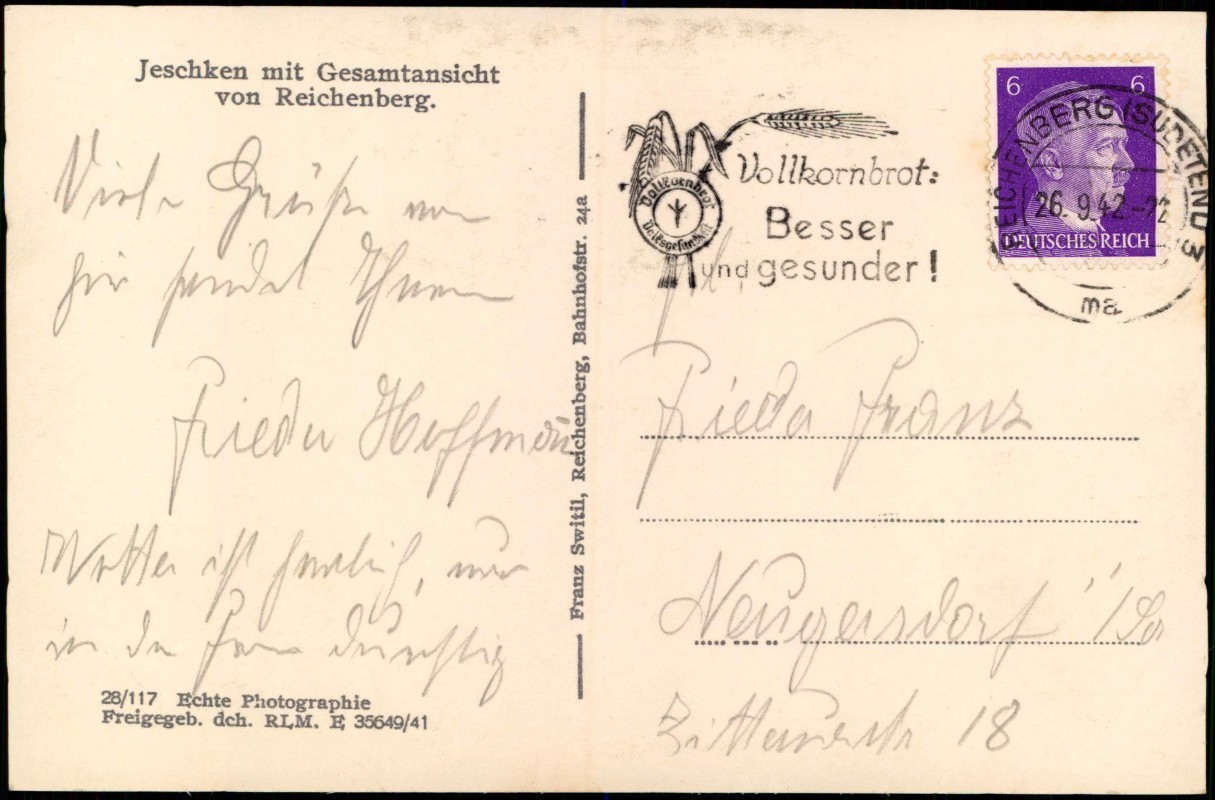 Jeschken mit Gesamtansicht
von Reichenberg.
Viele Grüße von
hir sendet Ihnen
Frieda Hoffmann
Wetter ist herrlich, nur
in der Fern dunstig
28/117 Echte Photographie
Freigegeb. dch. RLM. E 35649/41
Franz Switil, Reichenberg, Bahnhofstr. 24a
Vollkornbrot
Volksgesundheit
Vollkornbrot:
Besser
und gesunder!
6 6
DEUTSCHES REICH
REICHENBERG (SUDETENL) 3
26. 9. 42.-22
ma
Frl.
Frieda Franz
Neugersdorf i/Sa
Zittauerstr 18